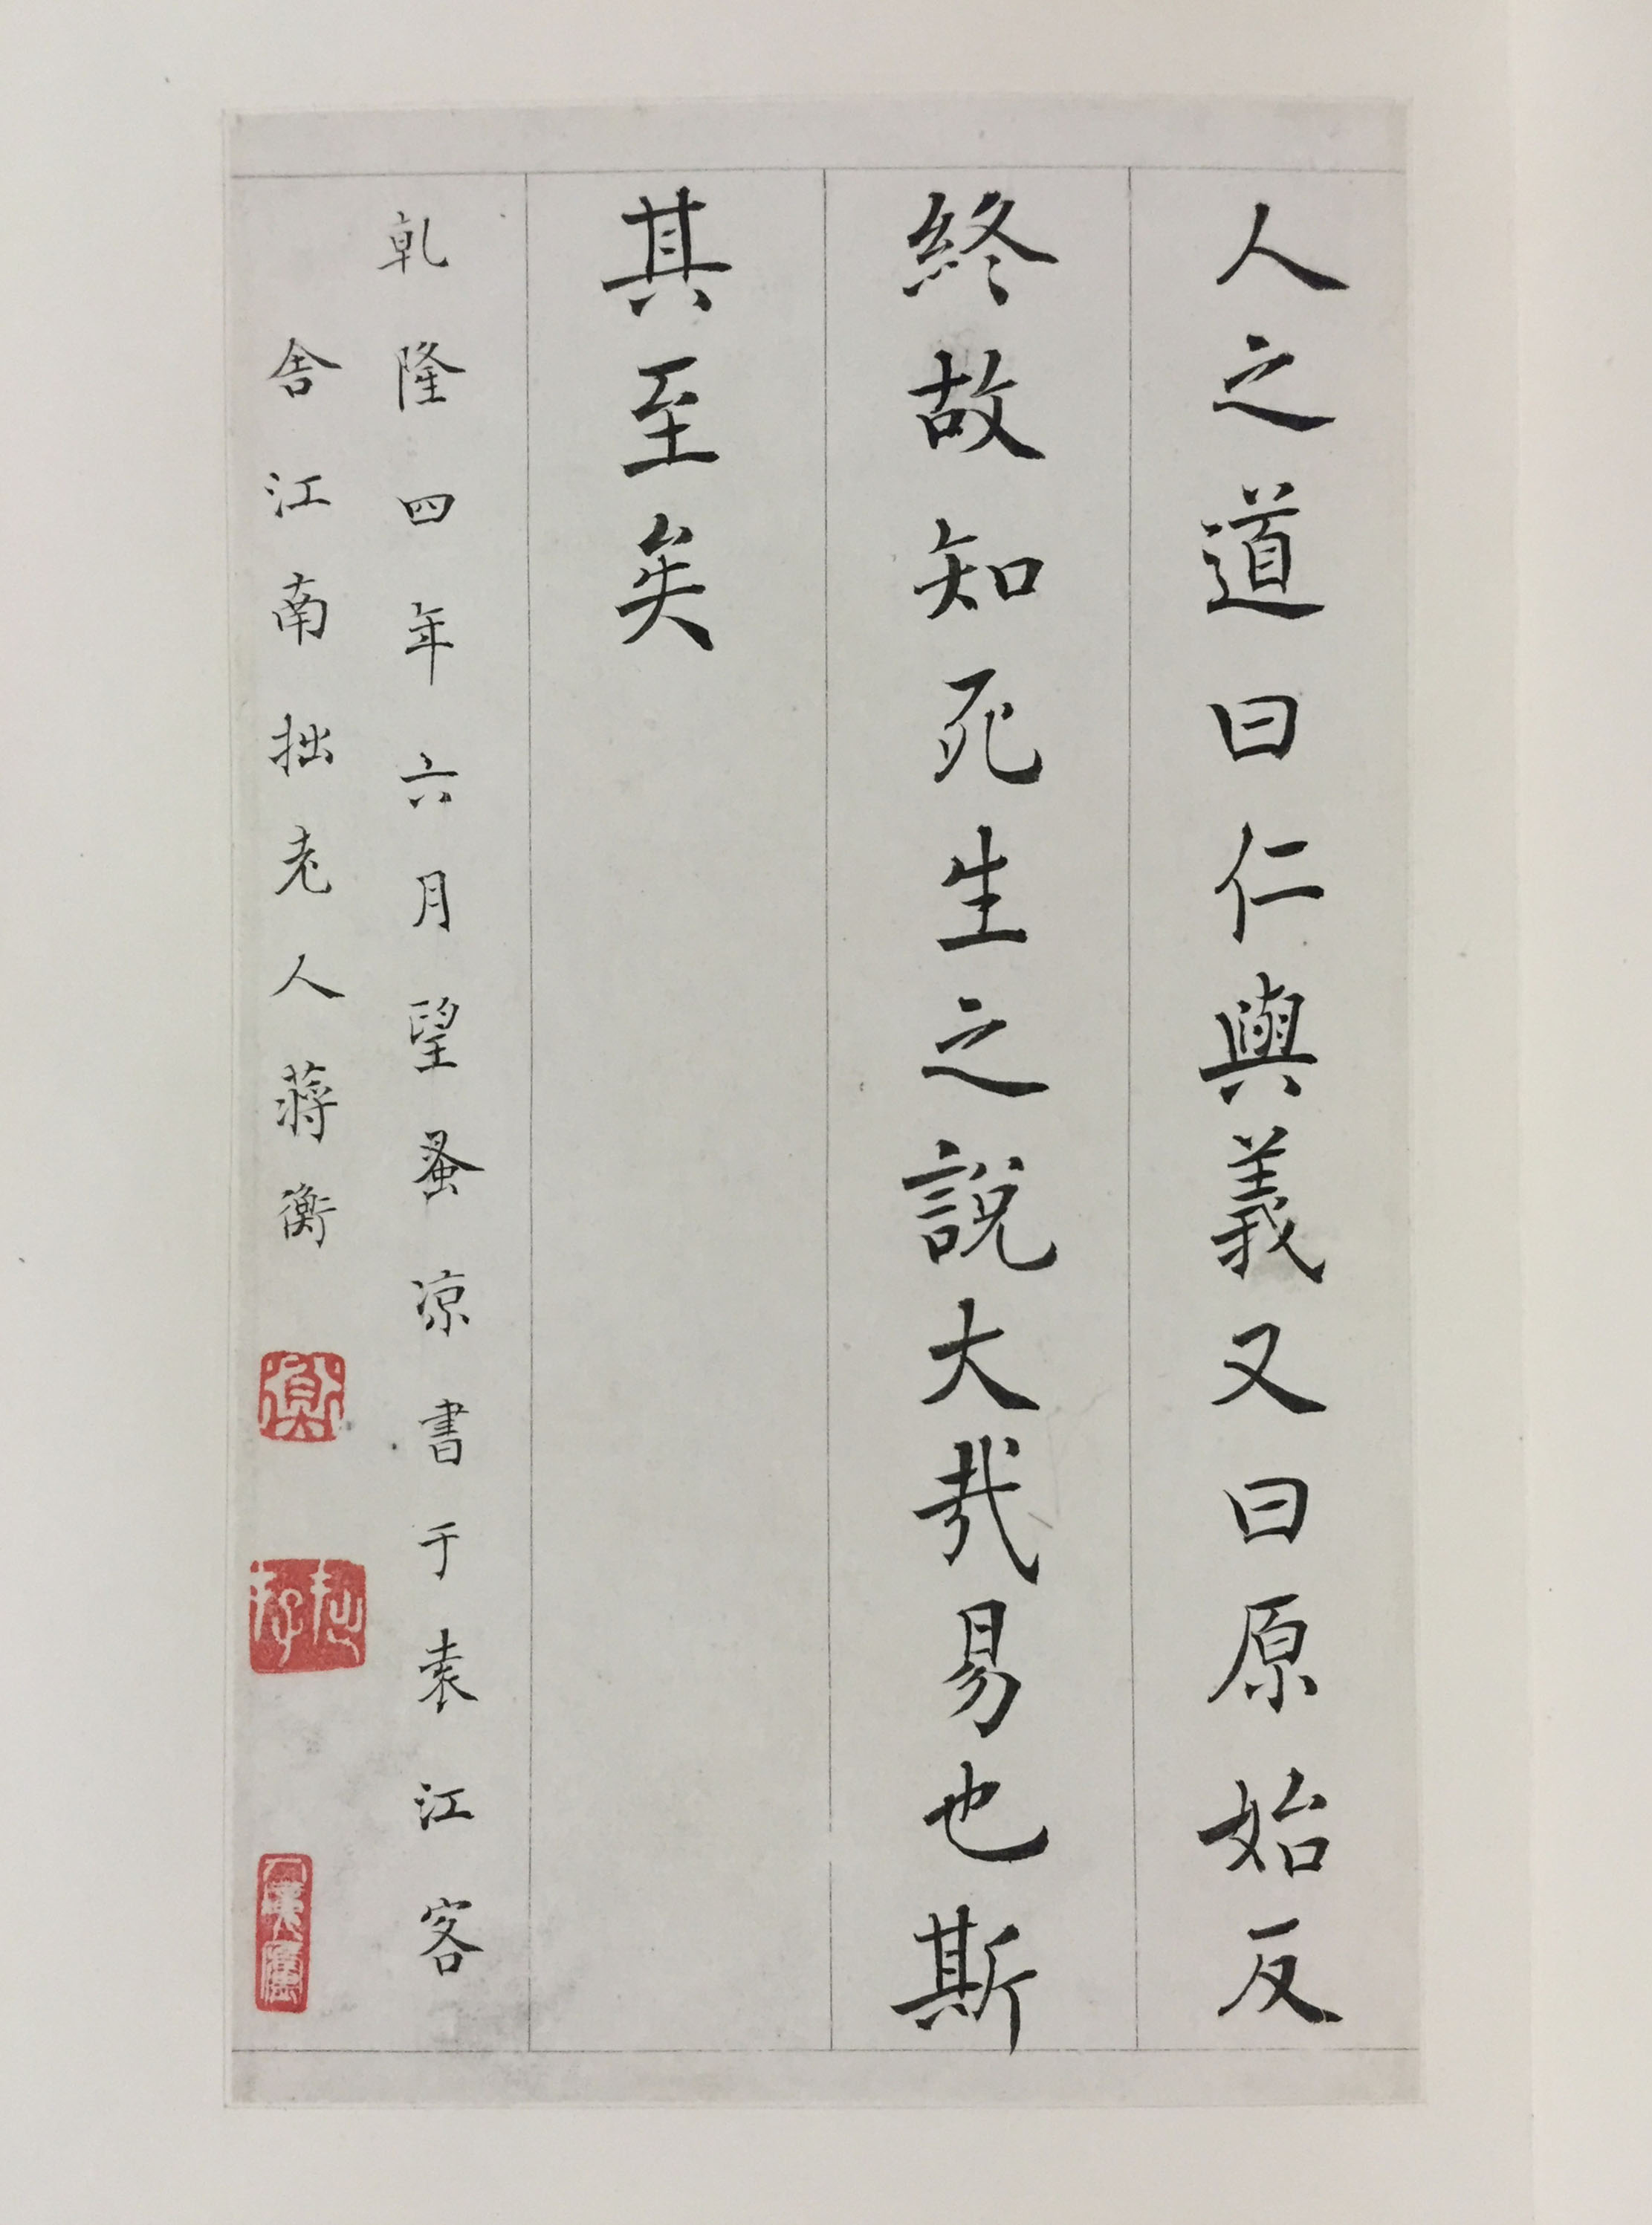 人之道曰仁與義又曰原始反
終故知死生之說大哉易也斯
其至矣
乹隆四年六月望蚤凉書于袁江客
舍江南拙老人蔣衡
衡
拙存